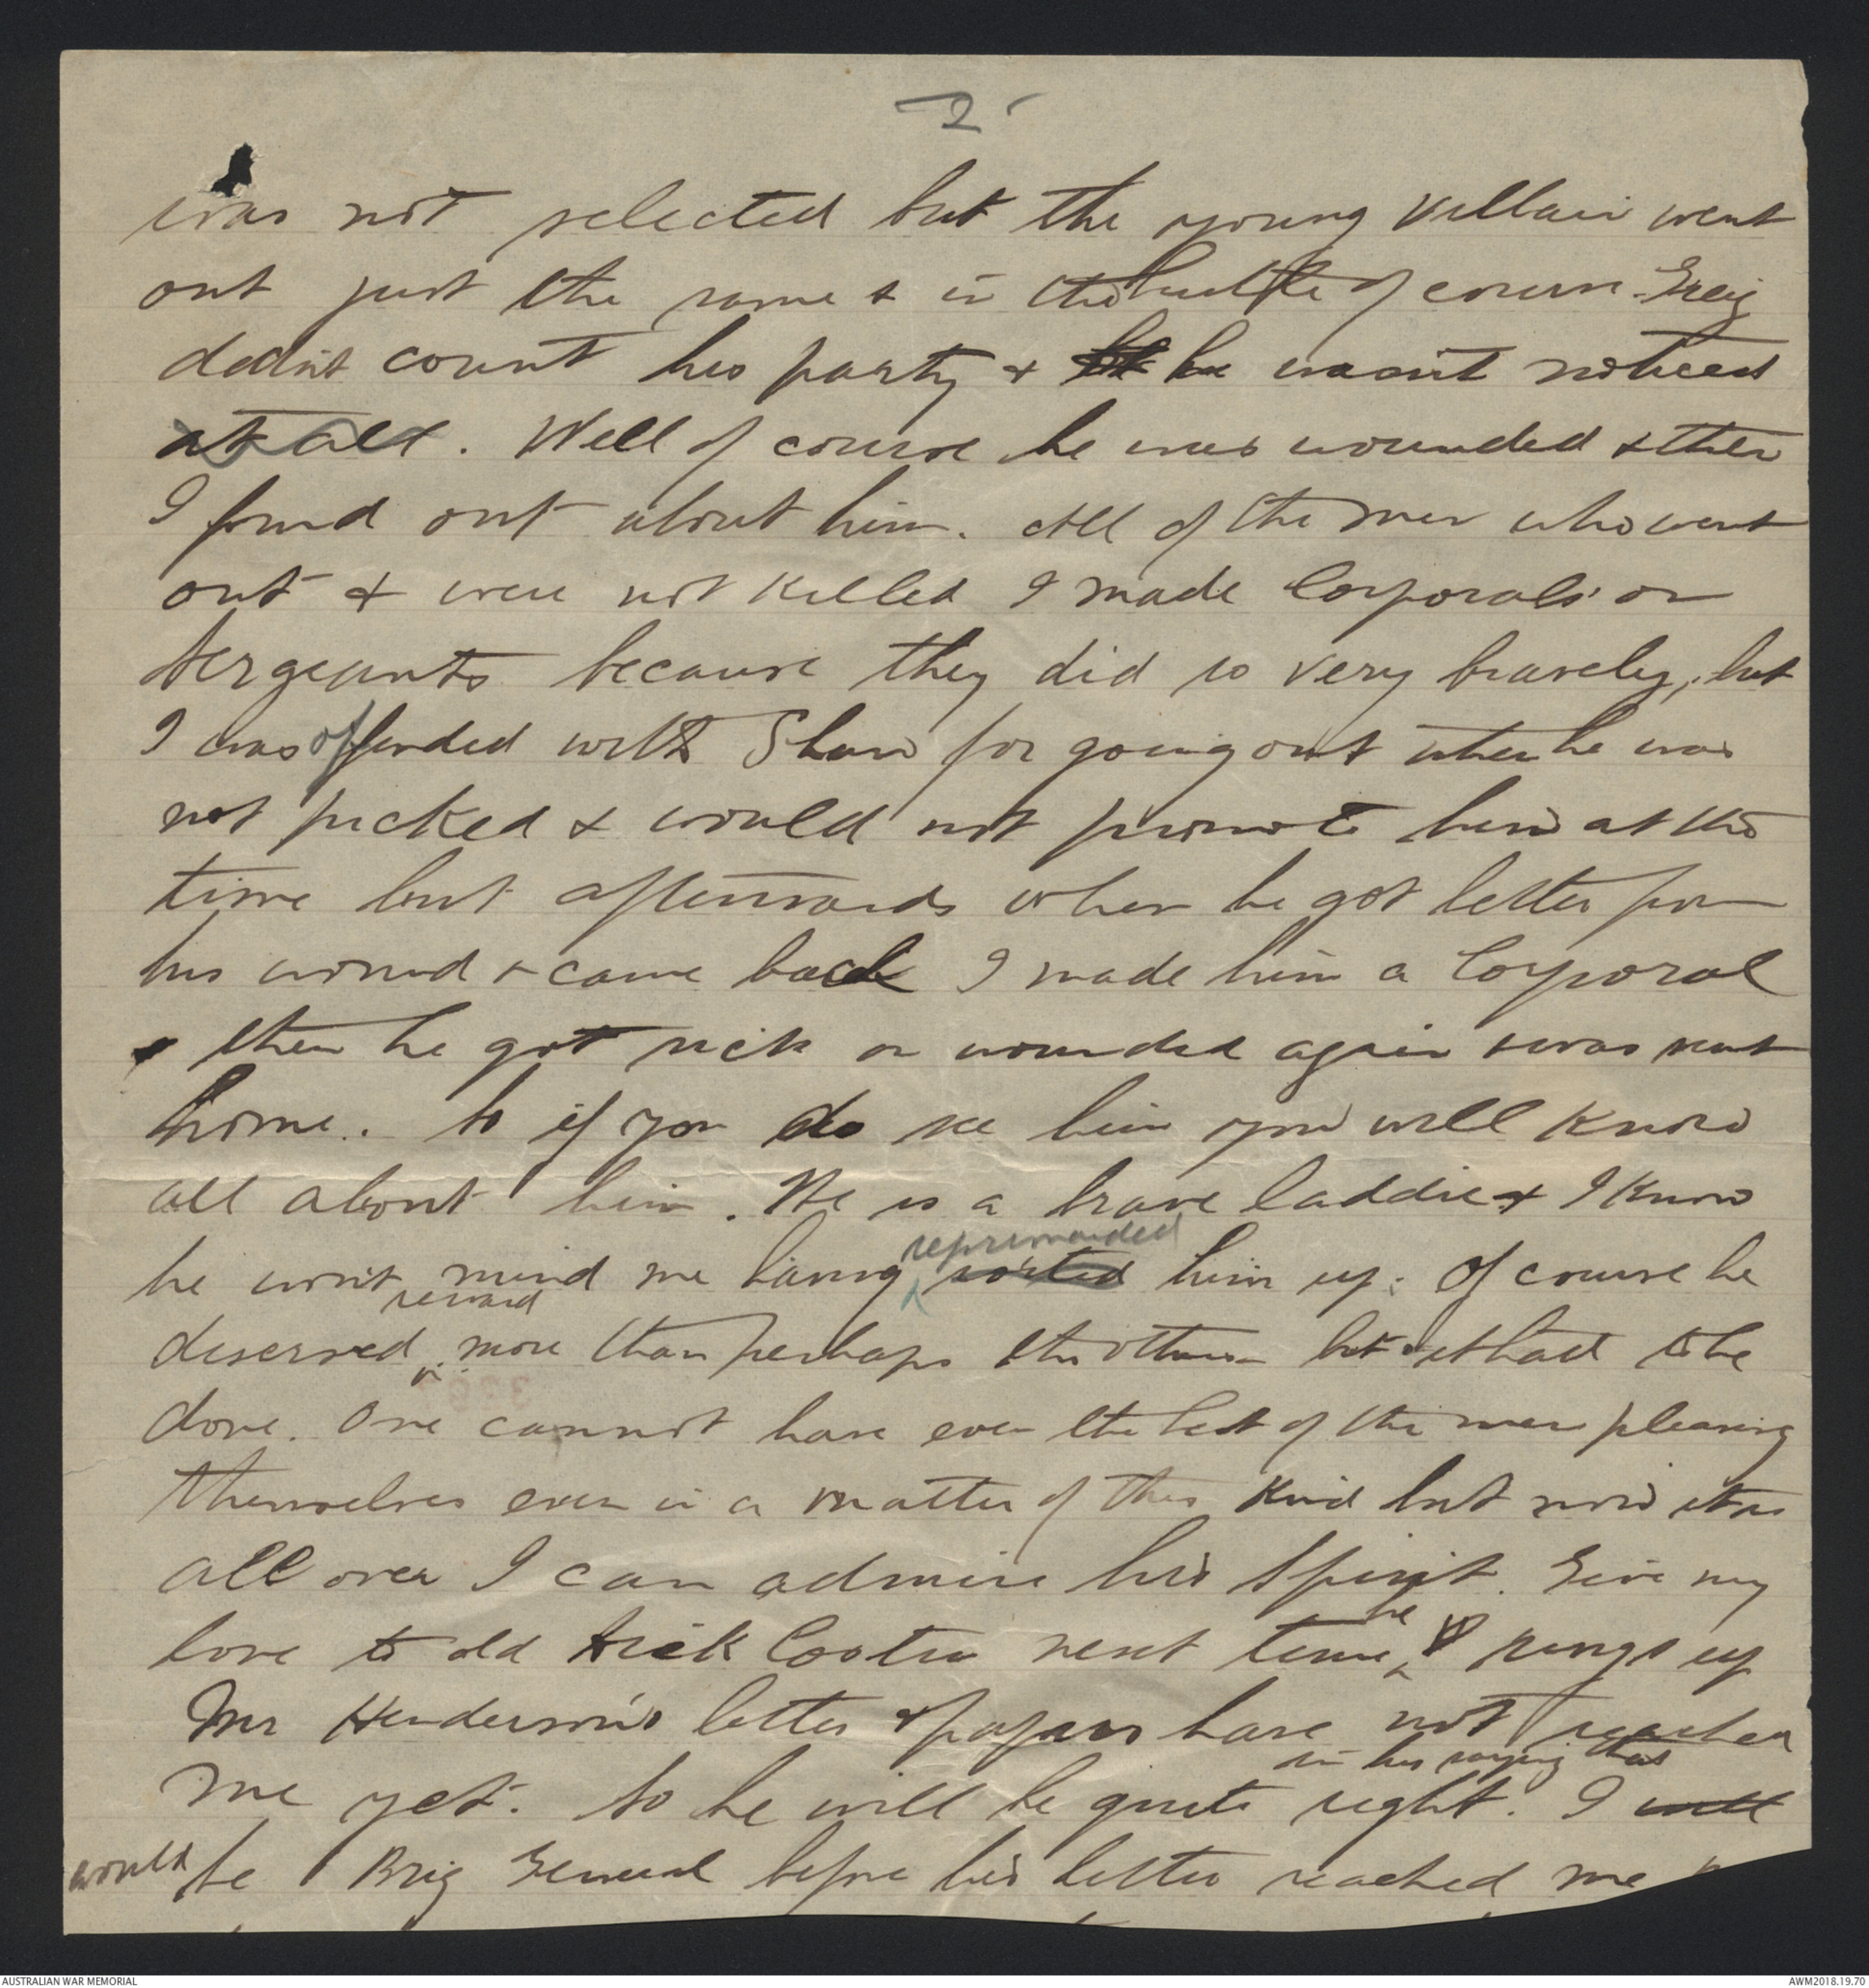 2
was not selected but the young villain went
out just the same & in the of course Greig
didn't count his party & he wasn't noticed
at all. Well of course he was wounded & then
I found out about him. All of the men who went
out & were not killed I made Corporals or
Sergeants because they did so very bravely, but
I was offended with Shaw for going out when he was
not picked & would not promote him at the
time but afterwards when he got better from
his wound & came back I made him a Corporal
& then he got sick or wounded again & was sent
home. So if you do see him you will know
all about him. He is a brave laddie & I know
reprimanded
he won't mind me having sorted him up. Of course he
reward
deserved more than perhaps the others but it had to be
done. One cannot have even the best of the men pleasing
themselves even in a matter of this kind but now it is
all over I can admire his spirit. Give my
he
love to old next time rings up
Mr Henderson's letter & papers have not reached
in his saying that
me yet. So he will be quite right. I will
would be Brig General before his letter reached me
AUSTRALIAN WAR MEMORIAL
AWM2018.19.70